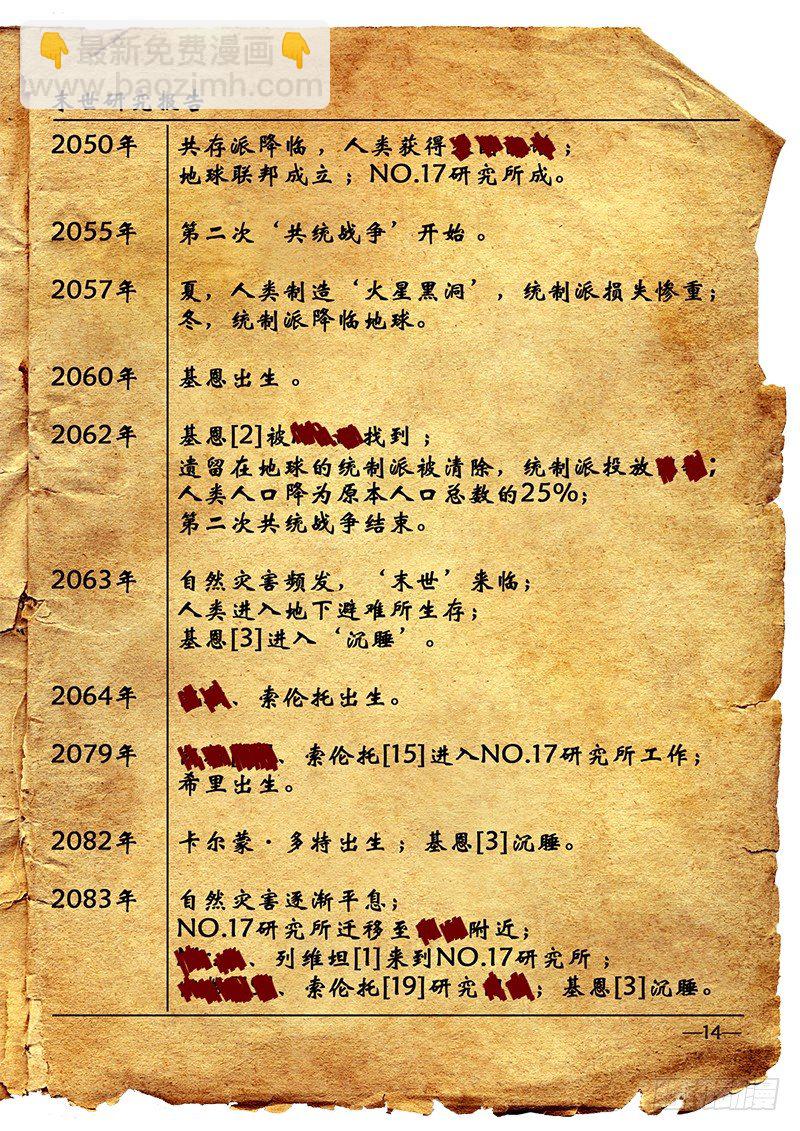 👇最新免费漫画👇
www.baozimh.com
末世研究报告
2050年 共存派降临，人类获得；
地球联邦成立；NO.17研究所成。
2055年 第二次‘共统战争’开始。
2057年 夏，人类制造‘火星黑洞’，统制派损失惨重；
冬，统制派降临地球。
2060年 基恩出生。
2062年 基恩[2]被找到；
遗留在地球的统制派被清除，统制派投放；
人类人口降为原本人口总数的25%；
第二次共统战争结束。
2063年 自然灾害频发，‘末世’来临；
人类进入地下避难所生存；
基恩[3]进入‘沉睡’。
2064年 、索伦托出生。
2079年 、索伦托[15]进入NO.17研究所工作；
希里出生。
2082年 卡尔蒙·多特出生；基恩[3]沉睡。
2083年 自然灾害逐渐平息；
NO.17研究所迁移至附近；
、列维坦[1]来到NO.17研究所；
、索伦托[19]研究；基恩[3]沉睡。
—14—